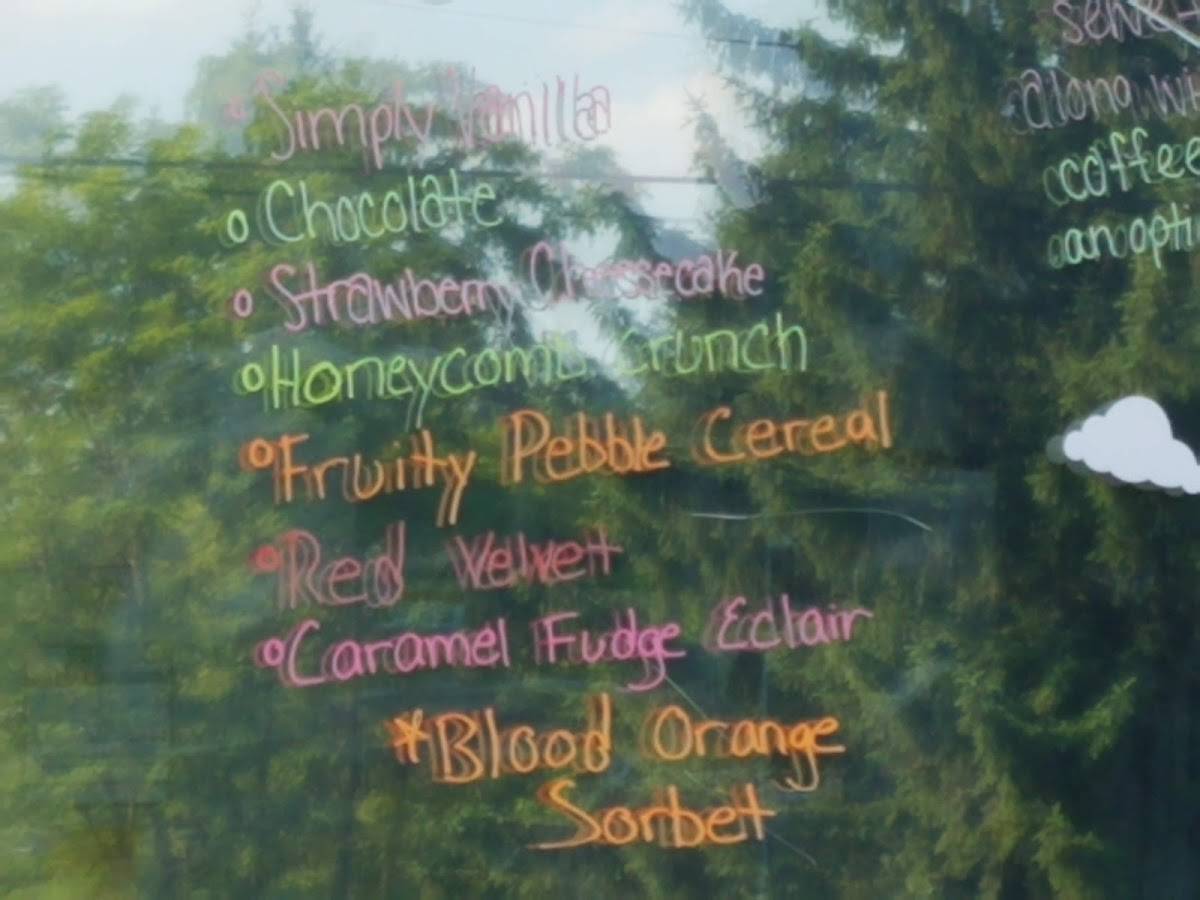 Simply Vanilla
Chocolate
Strawberry Cheesecake
Honeycomb Crunch
Fruity Pebble Cereal
Red Velvet
Caramel Fudge Eclair
*Blood Orange
Sorbet
along
coffee
an